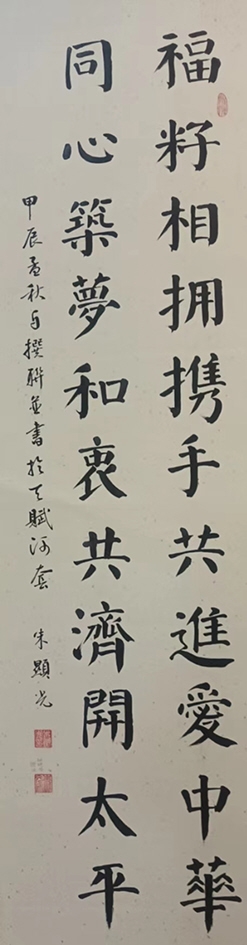 福籽相拥携手共進愛中華
同心築夢和衷共濟開太平
甲辰孟秋自撰聯並書於天賦河套 朱顯光